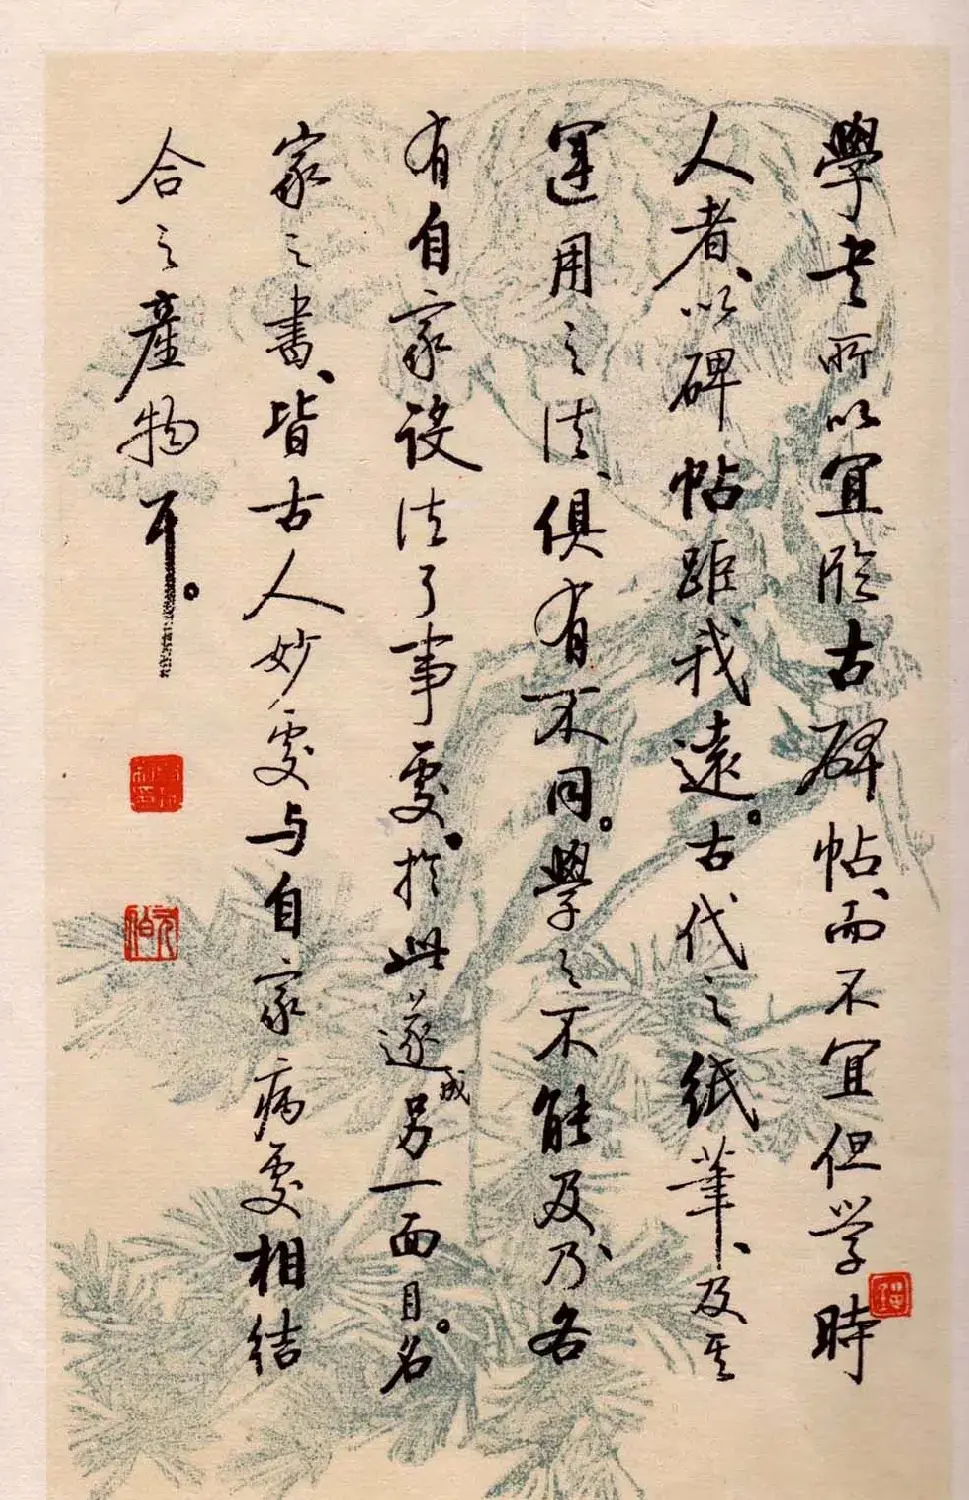 學书所以宜临古碑帖、而不宜但学時
人者、以碑帖距我遠。古代之紙筆、及其
運用之法、俱有不同。學之不能及、乃各
有自家设法了事處。於此遂成另一面目。名
家之書、皆古人妙處与自家病處相结
合之產物耳。
启功
元白